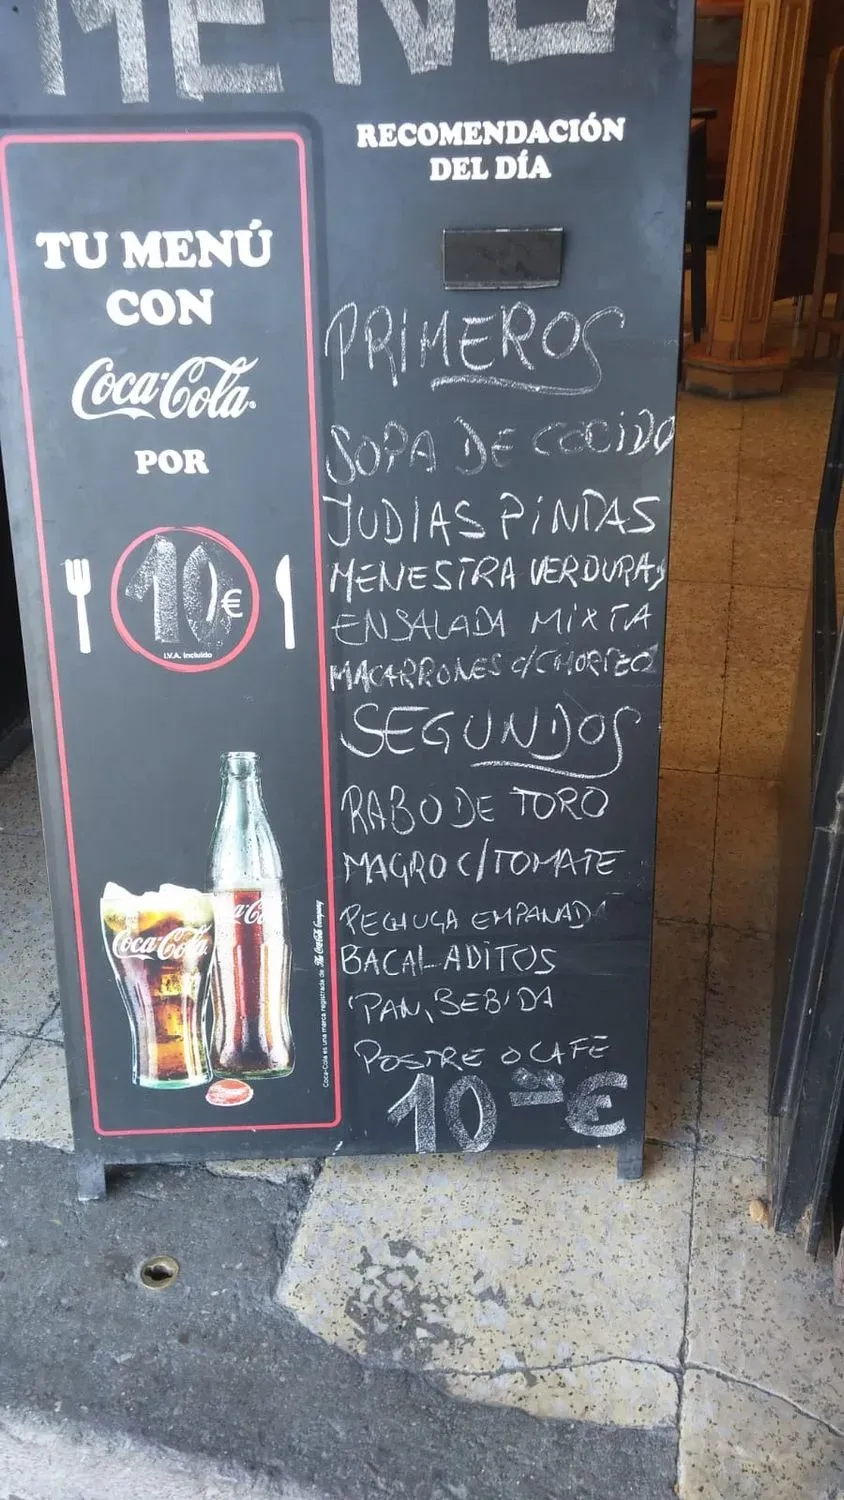 MENÚ
TU MENÚ
CON
Coca-Cola
POR
10 €
I.V.A. Incluido
Coca-Cola
Coca-Cola es una marca registrada de The Coca-Cola Company
RECOMENDACIÓN
DEL DÍA
PRIMEROS
SOPA DE COCIDO
JUDIAS PINTAS
MENESTRA VERDURAS
ENSALADA MIXTA
MACARRONES C/CHORIZO
SEGUNDOS
RABO DE TORO
MAGRO C/TOMATE
PECHUGA EMPANADA
BACALADITOS
PAN, BEBIDA
POSTRE O CAFE
10 €